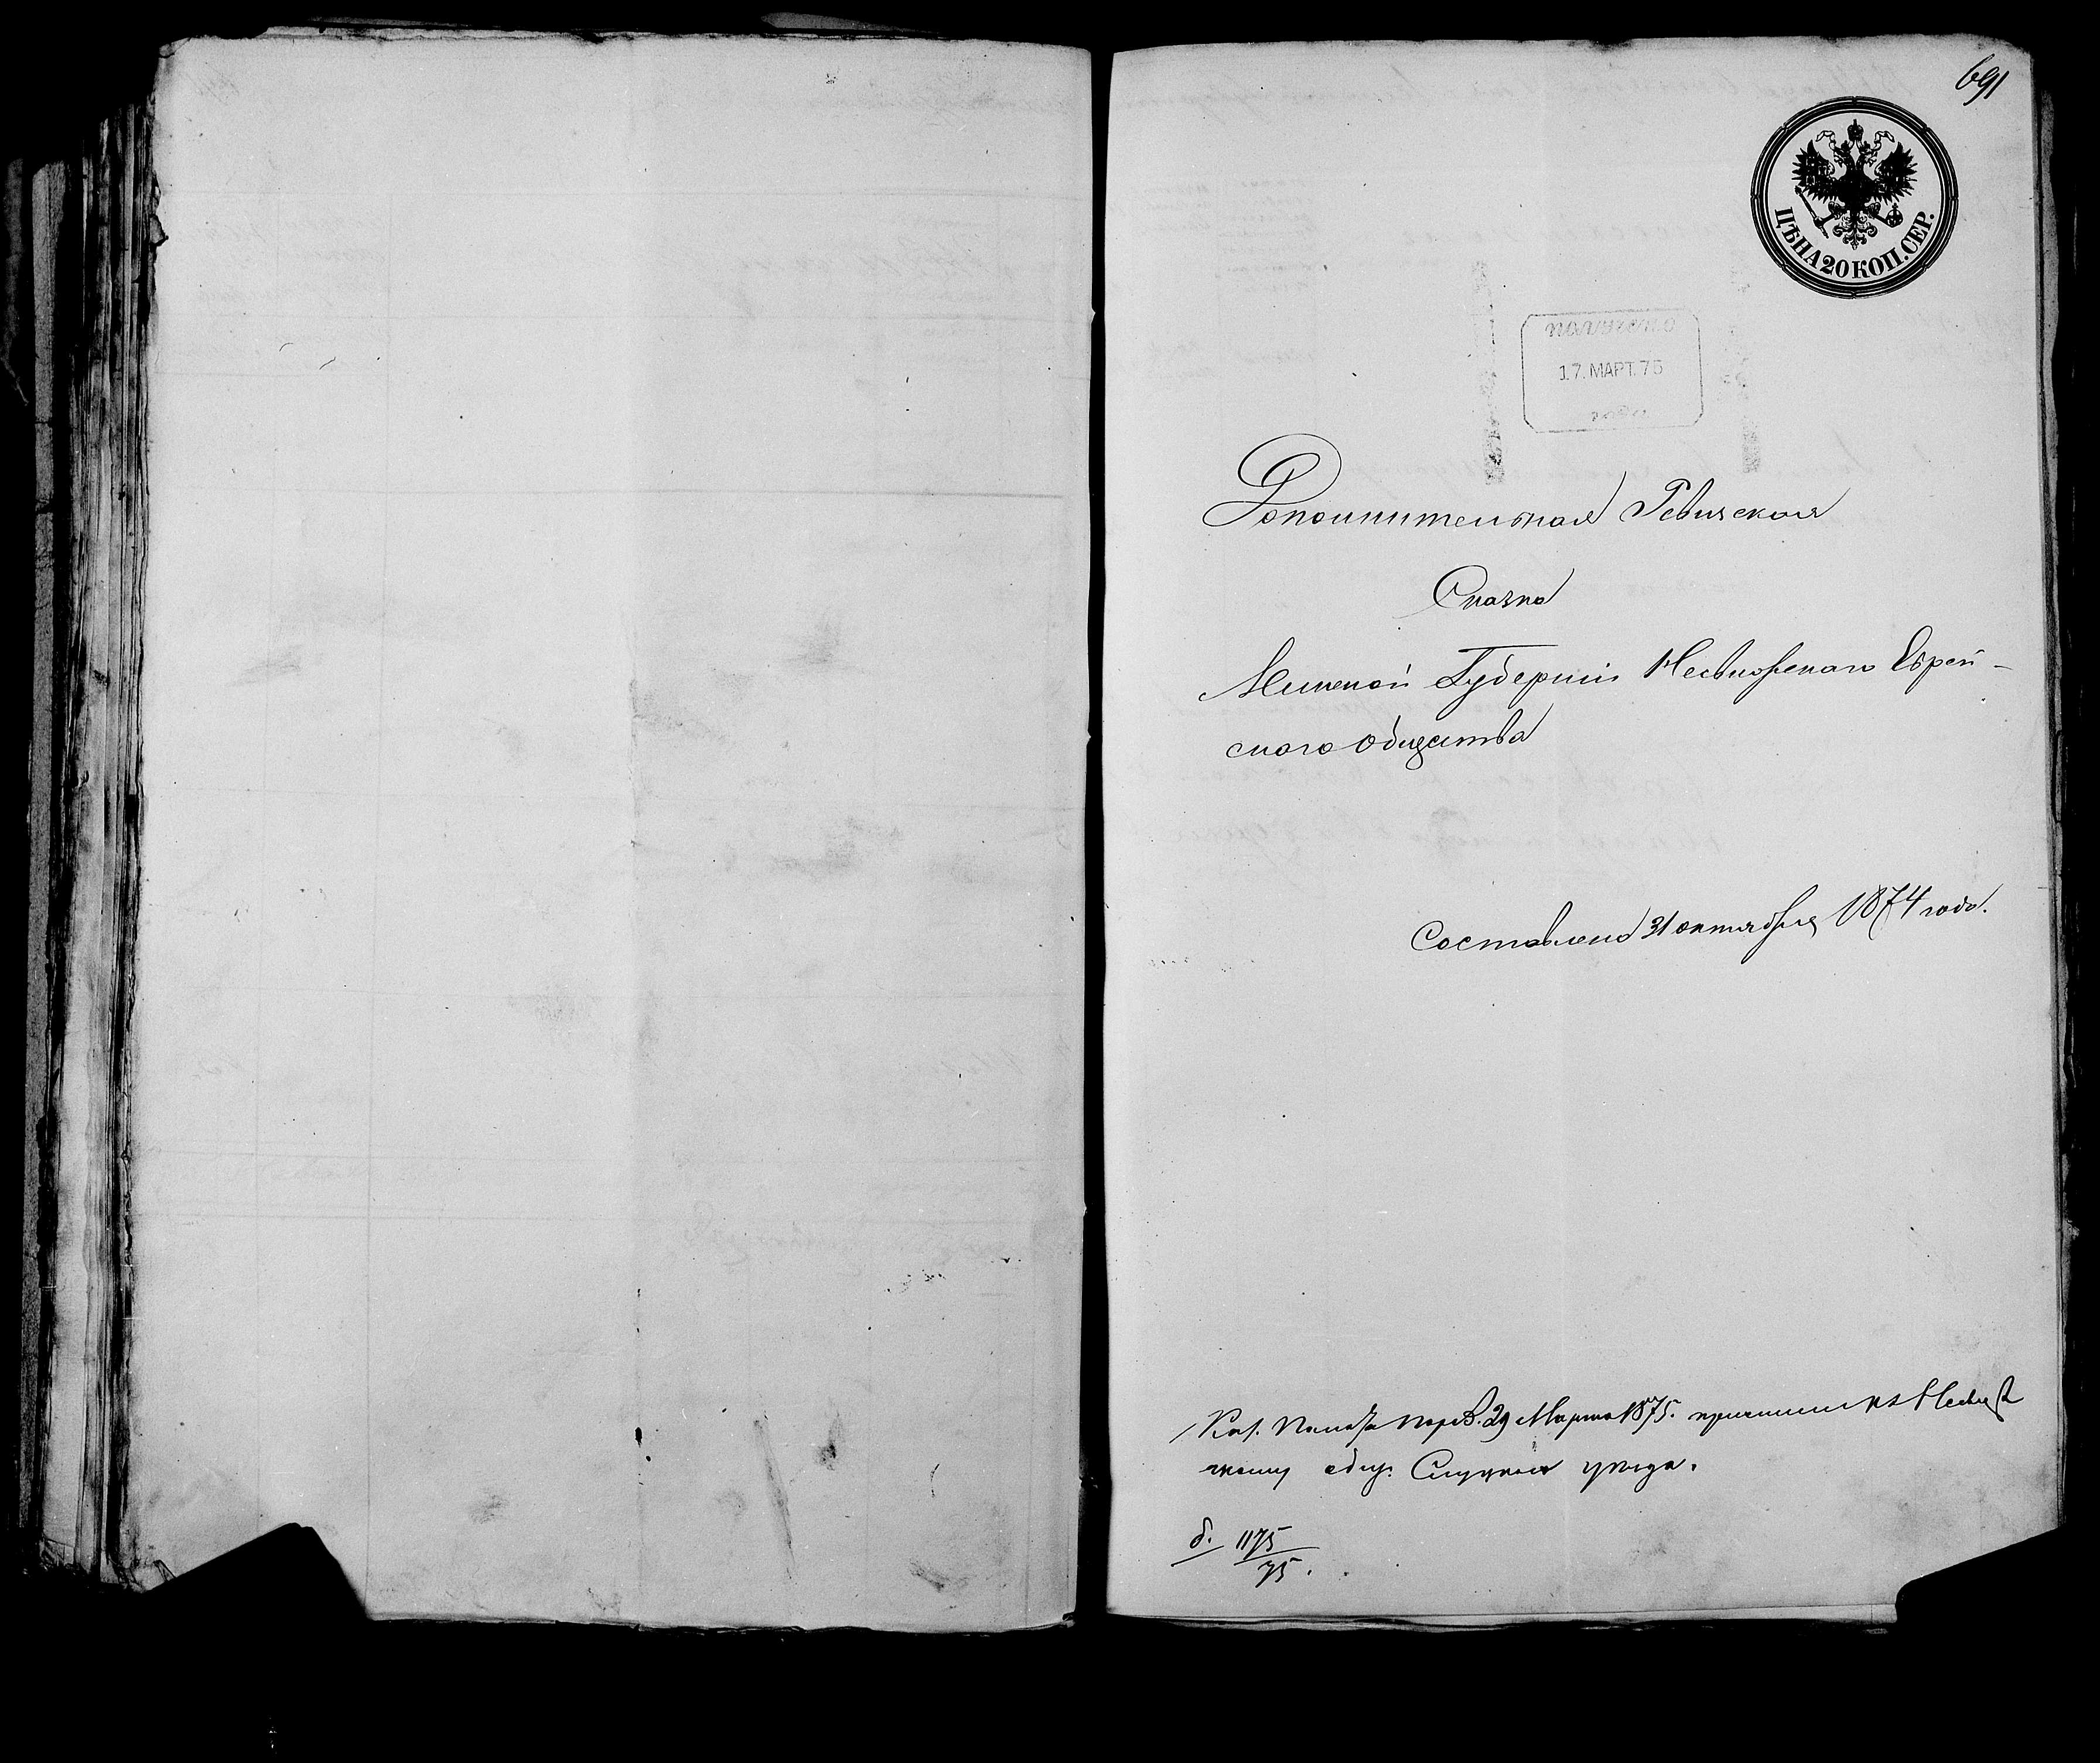 691
ЦѢНА 20 КОП. СЕР.
получено
17. МАРТ. 75
года
Дополнительная Ревизская
Сказка
Минской Губерніи Несвижскаго Еврей-
скаго общества
Составлена 31 октября 1874 года.
Каз. Палата 29 Марта 1875. къ Несвиж
скому общ. Слуцкаго уѣзда.
б. 1175
75.